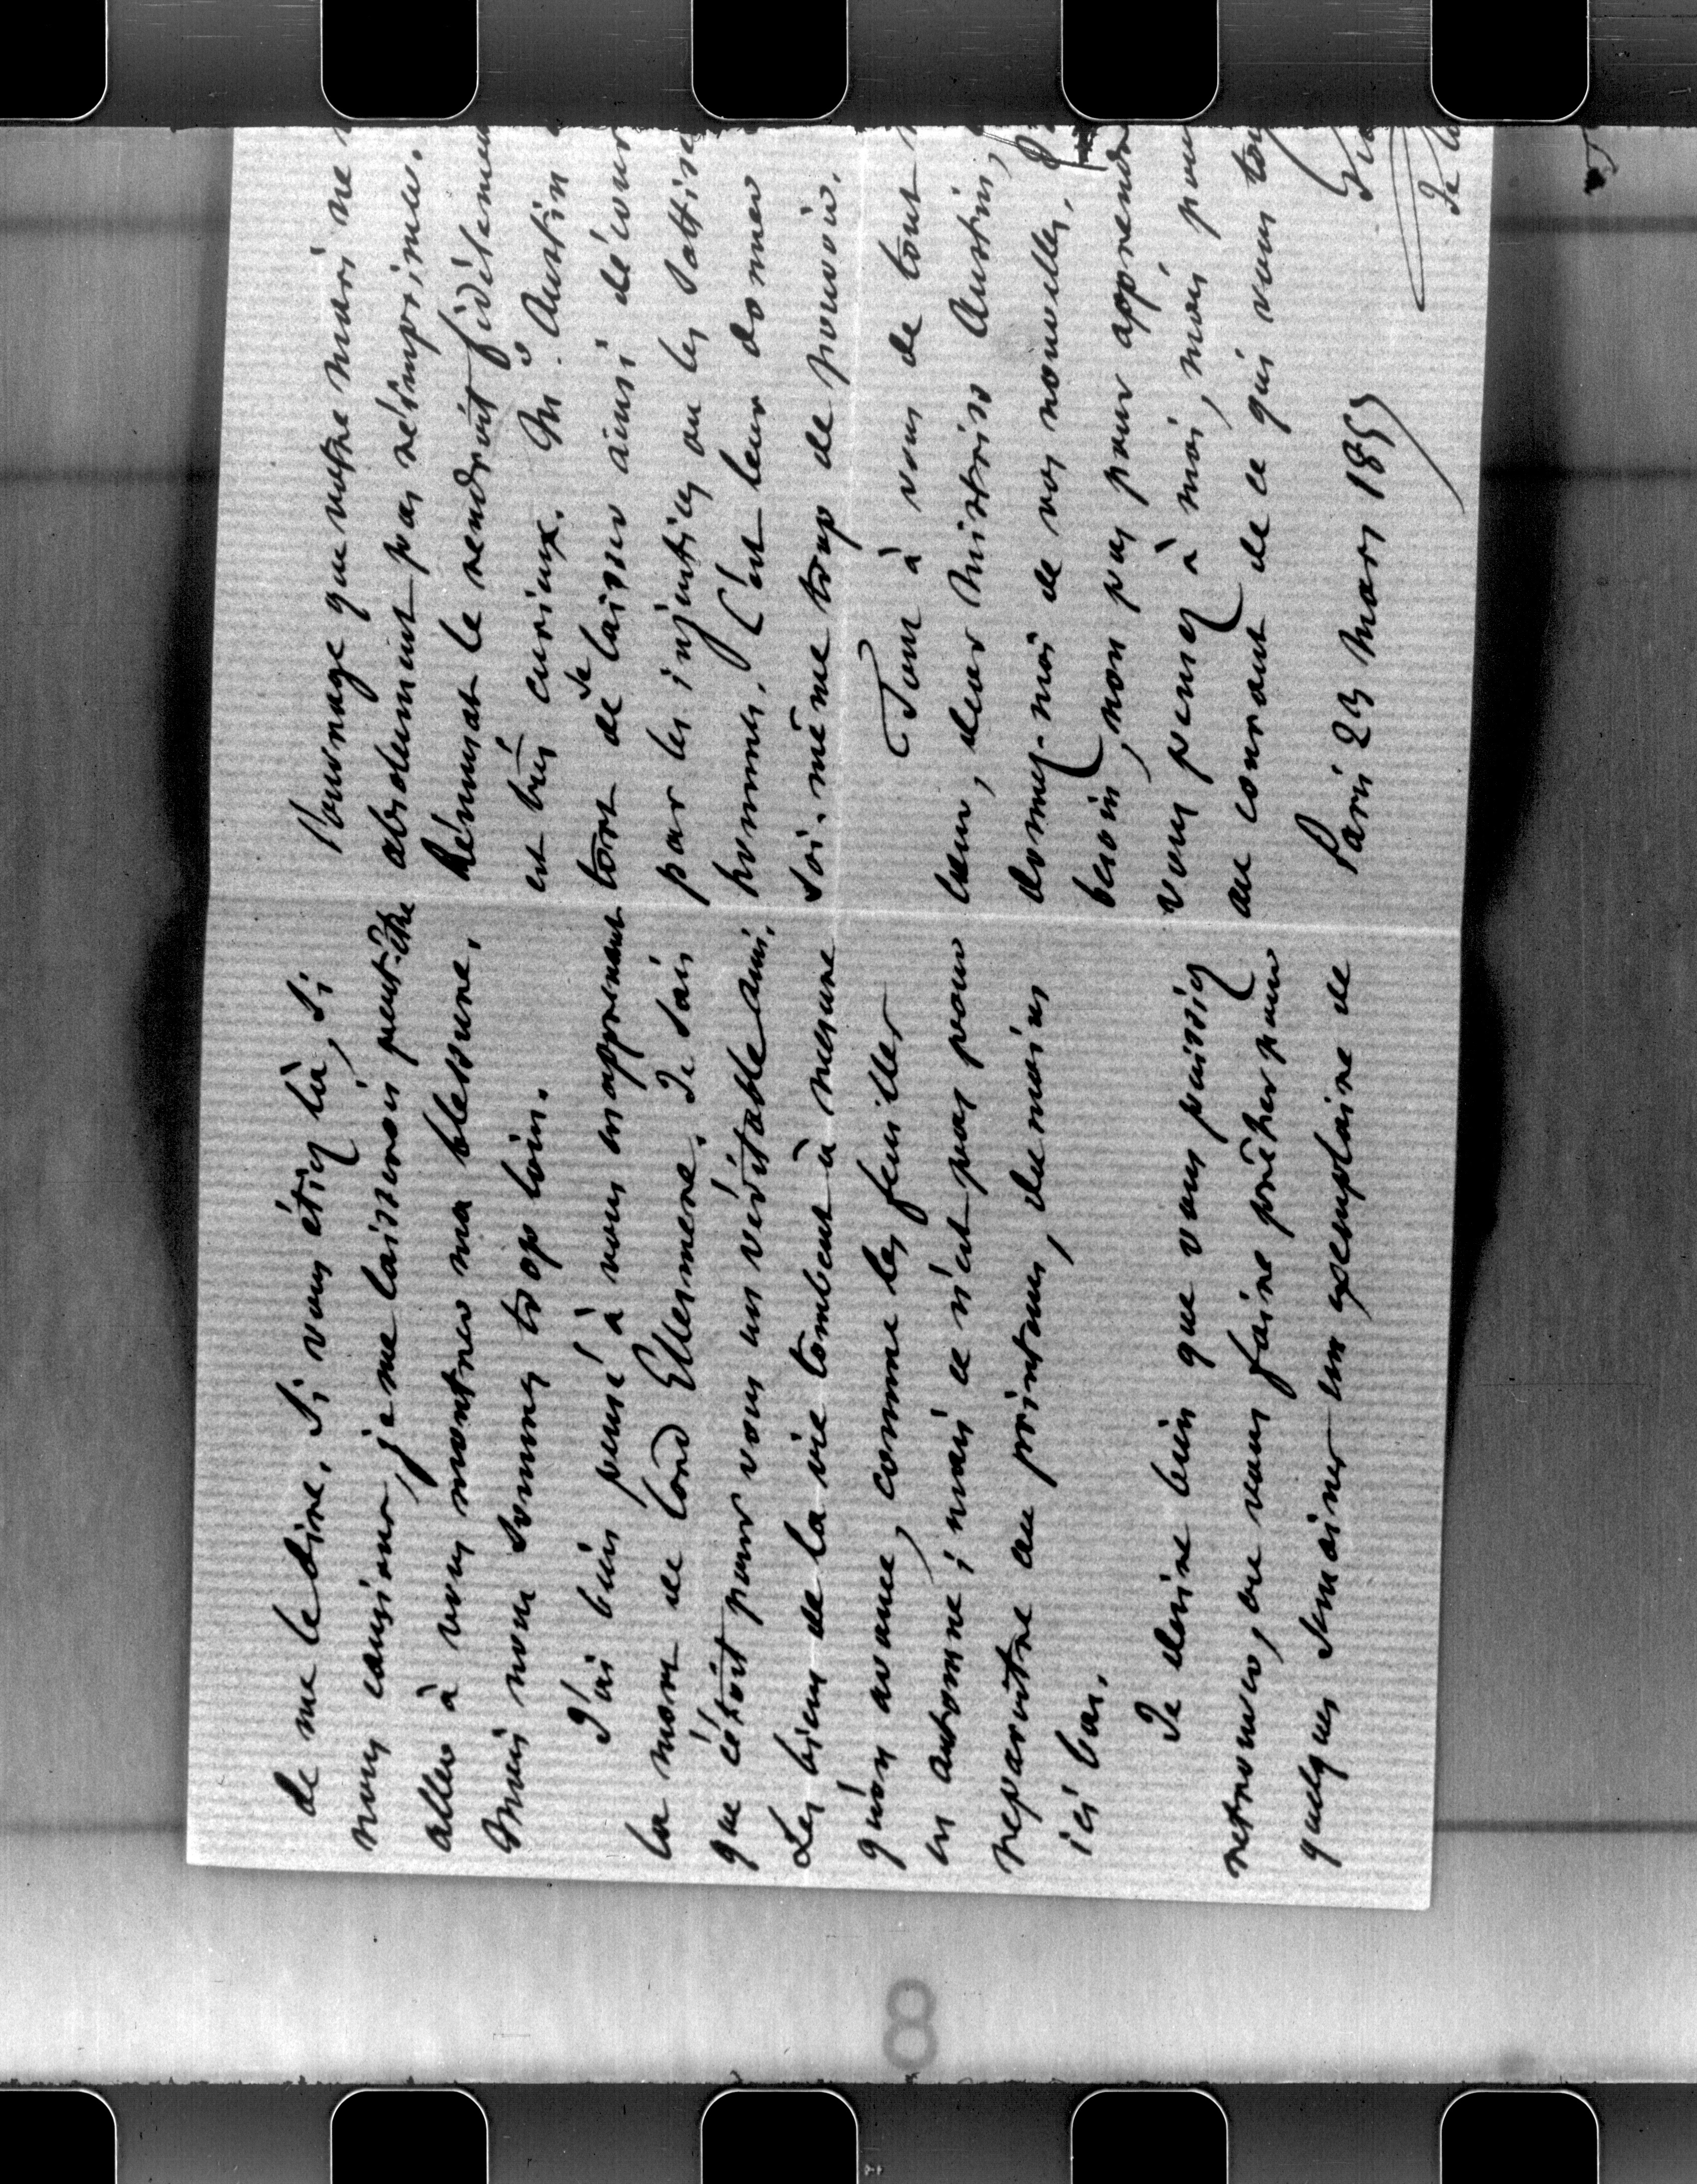 de me le dire. Si vous étiez là, si
nous causions, je me laisserois peut-être
aller à vous montrer ma blessure.
Mais nous sommes trop loin.
J'ai bien pensé à vous en apprenant
la mort de lord Ellesmere. Je sais
que c'étoit pour vous un véritable ami.
Les biens de la vie tombent à mesure
qu'on avance, comme les feuilles
en automne; mais ce n'est pas pour
reparaître au printems, du moins
ici bas.
Je desire bien que vous puissiez
retrouver, ou vous faire prêter pour
quelques semaines un exemplaire de
l'ouvrage que votre mari ne
absolument pas réimprimer.
Rémusat le rendroit fidèlement
est bien curieux. Mr. Austin
tort de se laisser ainsi décour
par les injustices ou les sottise
hommes. C'est leur donner
soi-même trop de pouvoir.
Tout à vous de tout
cœur, dear Mistriss Austin,
donnez-moi de vos nouvelles.
besoin, non pas pour apprendre
vous pensez à moi, mais pour
au courant de ce qui vous tou
Paris 23 Mars 1857
Gui
Je
8